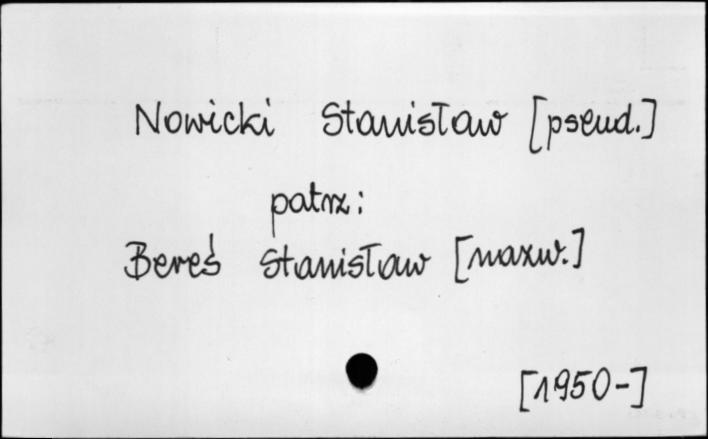 Nowicki Stanisław [pseud.]
patrz:
Bereś Stanisław [nazw.]
[1950-]